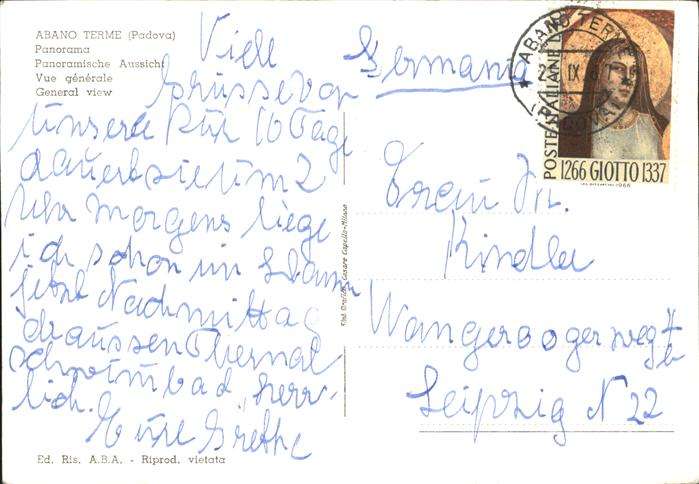 ABANO TERME (Padova)
Panorama
Panoramische Aussicht
Vue générale
General view
Viele
Grüsse von
unsere Kur 10 Tage
dauert sie um 2
Uhr morgens liege
ich schon im Schlamm
jetzt Nachmittag
draussen Thermal
schwimmbad, herr-
lich.
Eure Grethe
Ed. Ris. A.B.A. - Riprod. vietata
Cesare Capello - Milano
Germania
ABANO TERME
IX
POSTE ITALIANE
1266 GIOTTO 1337
Kindler
Wangerooger weg
Leipzig N 22